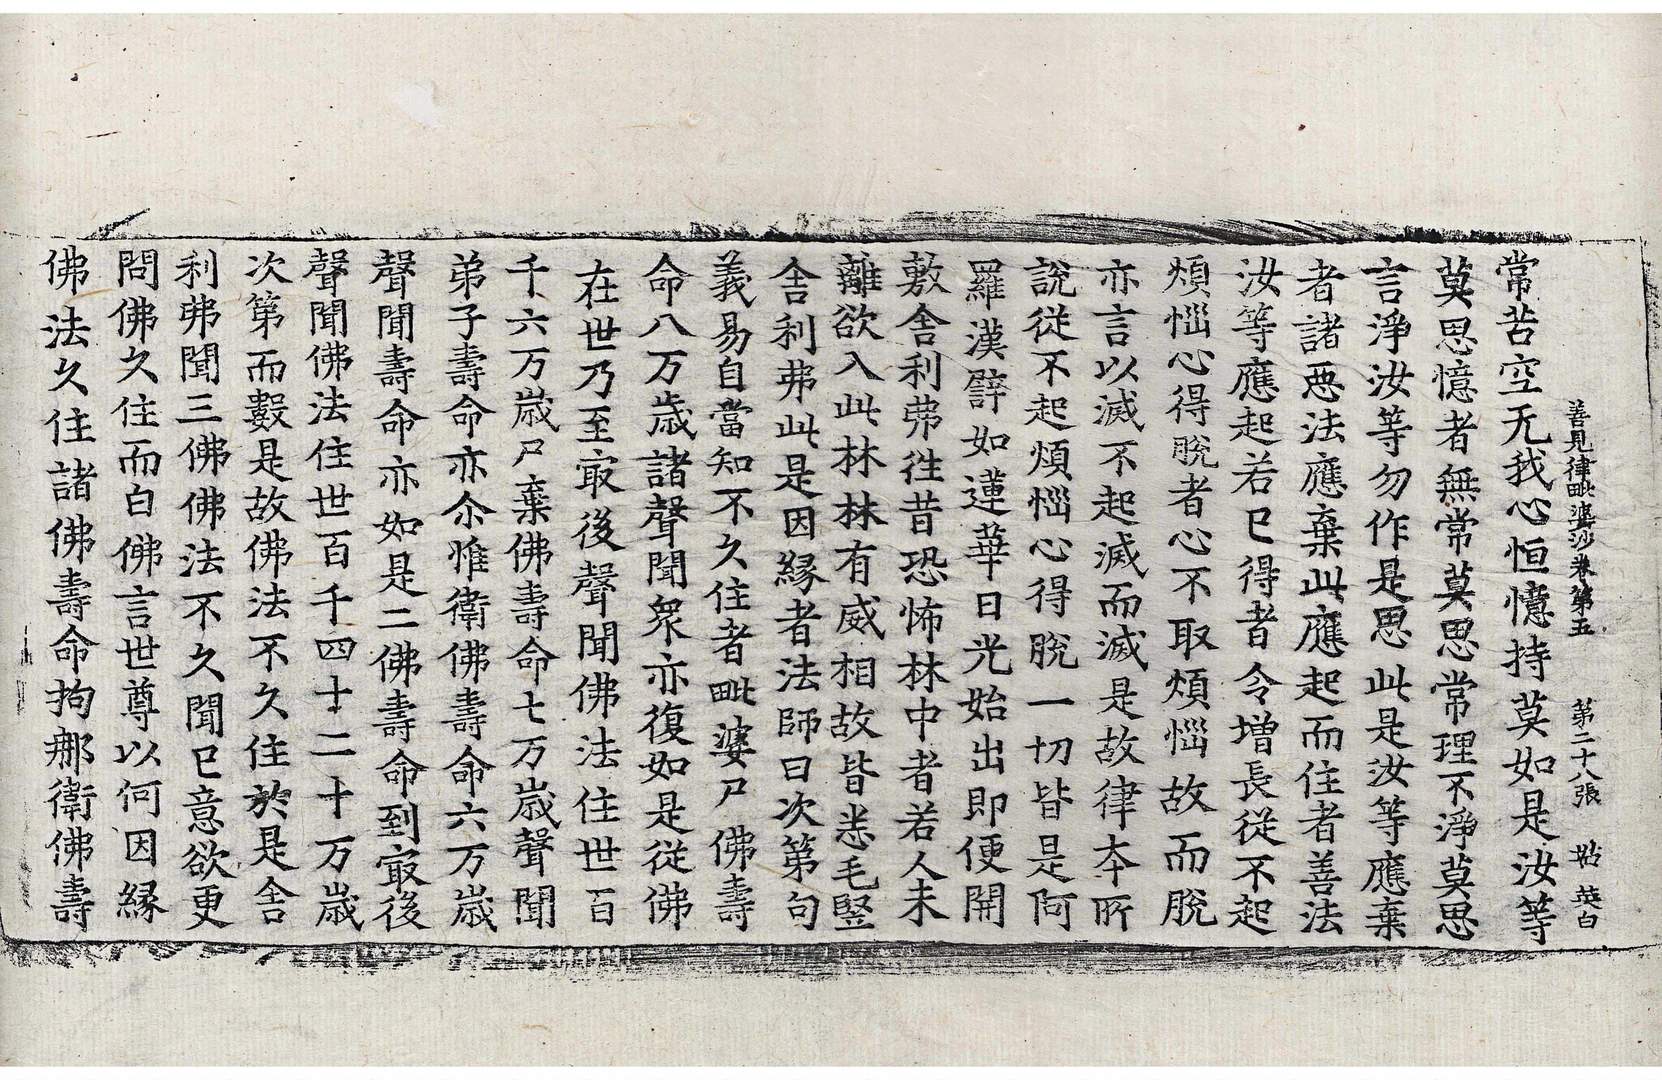 善見律毗婆沙卷第五　第二十八張　英白
常苦空无我心恒憶持莫如是汝等
莫思憶者無常莫思常理不淨莫思
言淨汝等勿作是思此是汝等應棄
者諸惡法應棄此應起而住者善法
汝等應起若已得者令增長從不起
煩惱心得脫者心不取煩惱故而脫
亦言以滅不起滅而滅是故律本所
說從不起煩惱心得脫一切皆是阿
羅漢譬如蓮華日光始出即便開
敷舍利弗往昔恐怖林中者若人未
離欲入此林林有威相故皆悉毛竪
舍利弗此是因緣者法師曰次第句
義易自當知不久住者毗婆尸佛壽
命八万歲諸聲聞衆亦復如是從佛
在世乃至㝡後聲聞佛法住世百
千六万歲尸棄佛壽命七万歲聲聞
弟子壽命亦尒惟衛佛壽命六万歲
聲聞壽命亦如是二佛壽命到㝡後
聲聞佛法住世百千四十二十万歲
次第而數是故佛法不久住於是舍
利弗聞三佛佛法不久聞已意欲更
問佛久住而白佛言世尊以何因緣
佛法久住諸佛壽命拘那衛佛壽